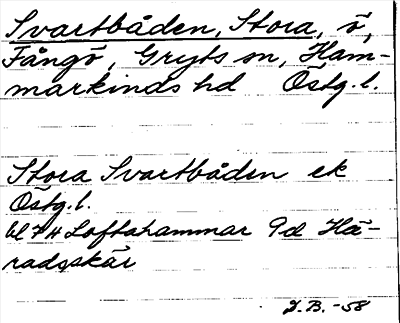 Svartbåden, Stora, ö,
Fångö, Gryts sn, Ham-
markinds hd Östg. l.
Stora Svartbåden ek
Östg. l.
bl 7 H Loftahammar 9d Hä-
radsskär
J.B. -58